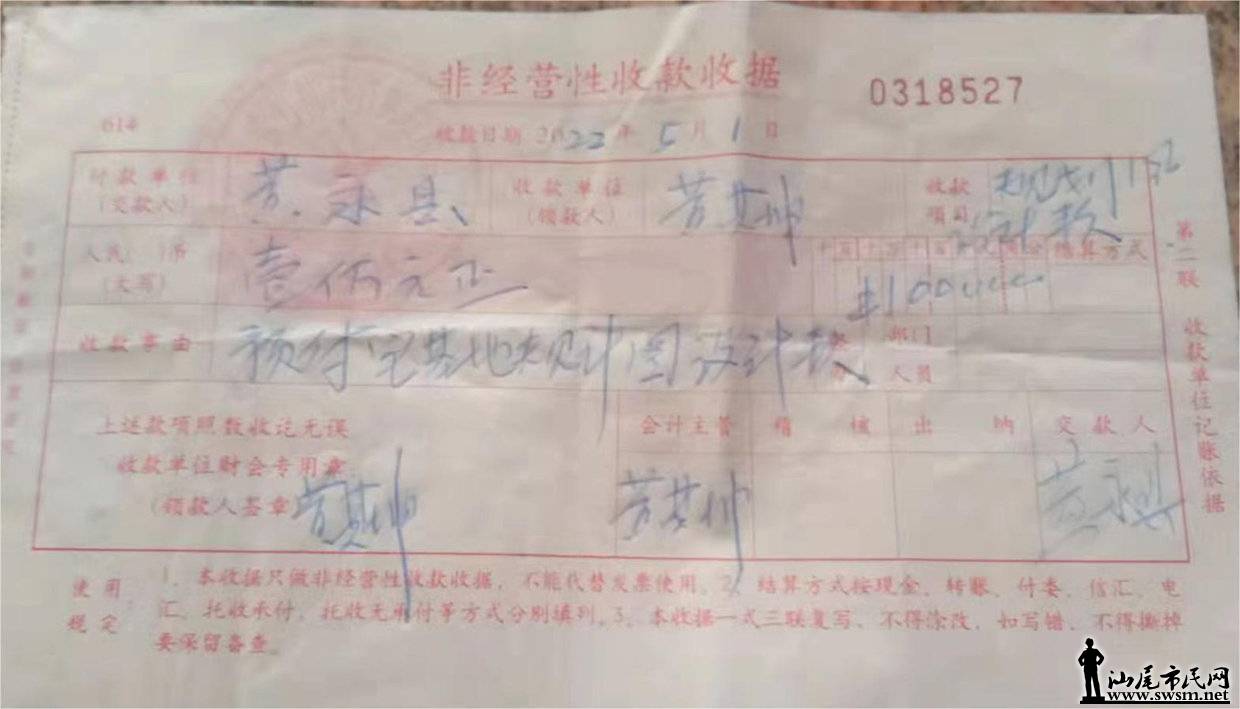 非经营性收款收据
0318527
614
收款日期 2022年 5月 1日
付款单位（交款人） 黄永县
收款单位（领款人）
收款项目 规划图设计款
人民（ ）币（大写） 壹佰元正
十百十万千百十元角分 结算方式
收款事由 预付宅基地规计图设计款
部门
人员
上述款项照数收讫无误
收款单位财会专用章
（领款人签章）
会计主管 稽核 出纳 交款人
第二联 收款单位记账依据
使用规定
1、本收据只做非经营性收款收据，不能代替发票使用。2、结算方式按现金、转账、付委、信汇、电
汇、托收承付，托收无承付等方式分别填列。3、本收据一式三联复写、不得涂改，如写错、不得撕掉
要保留备查。
汕尾市民网
www.swsm.net